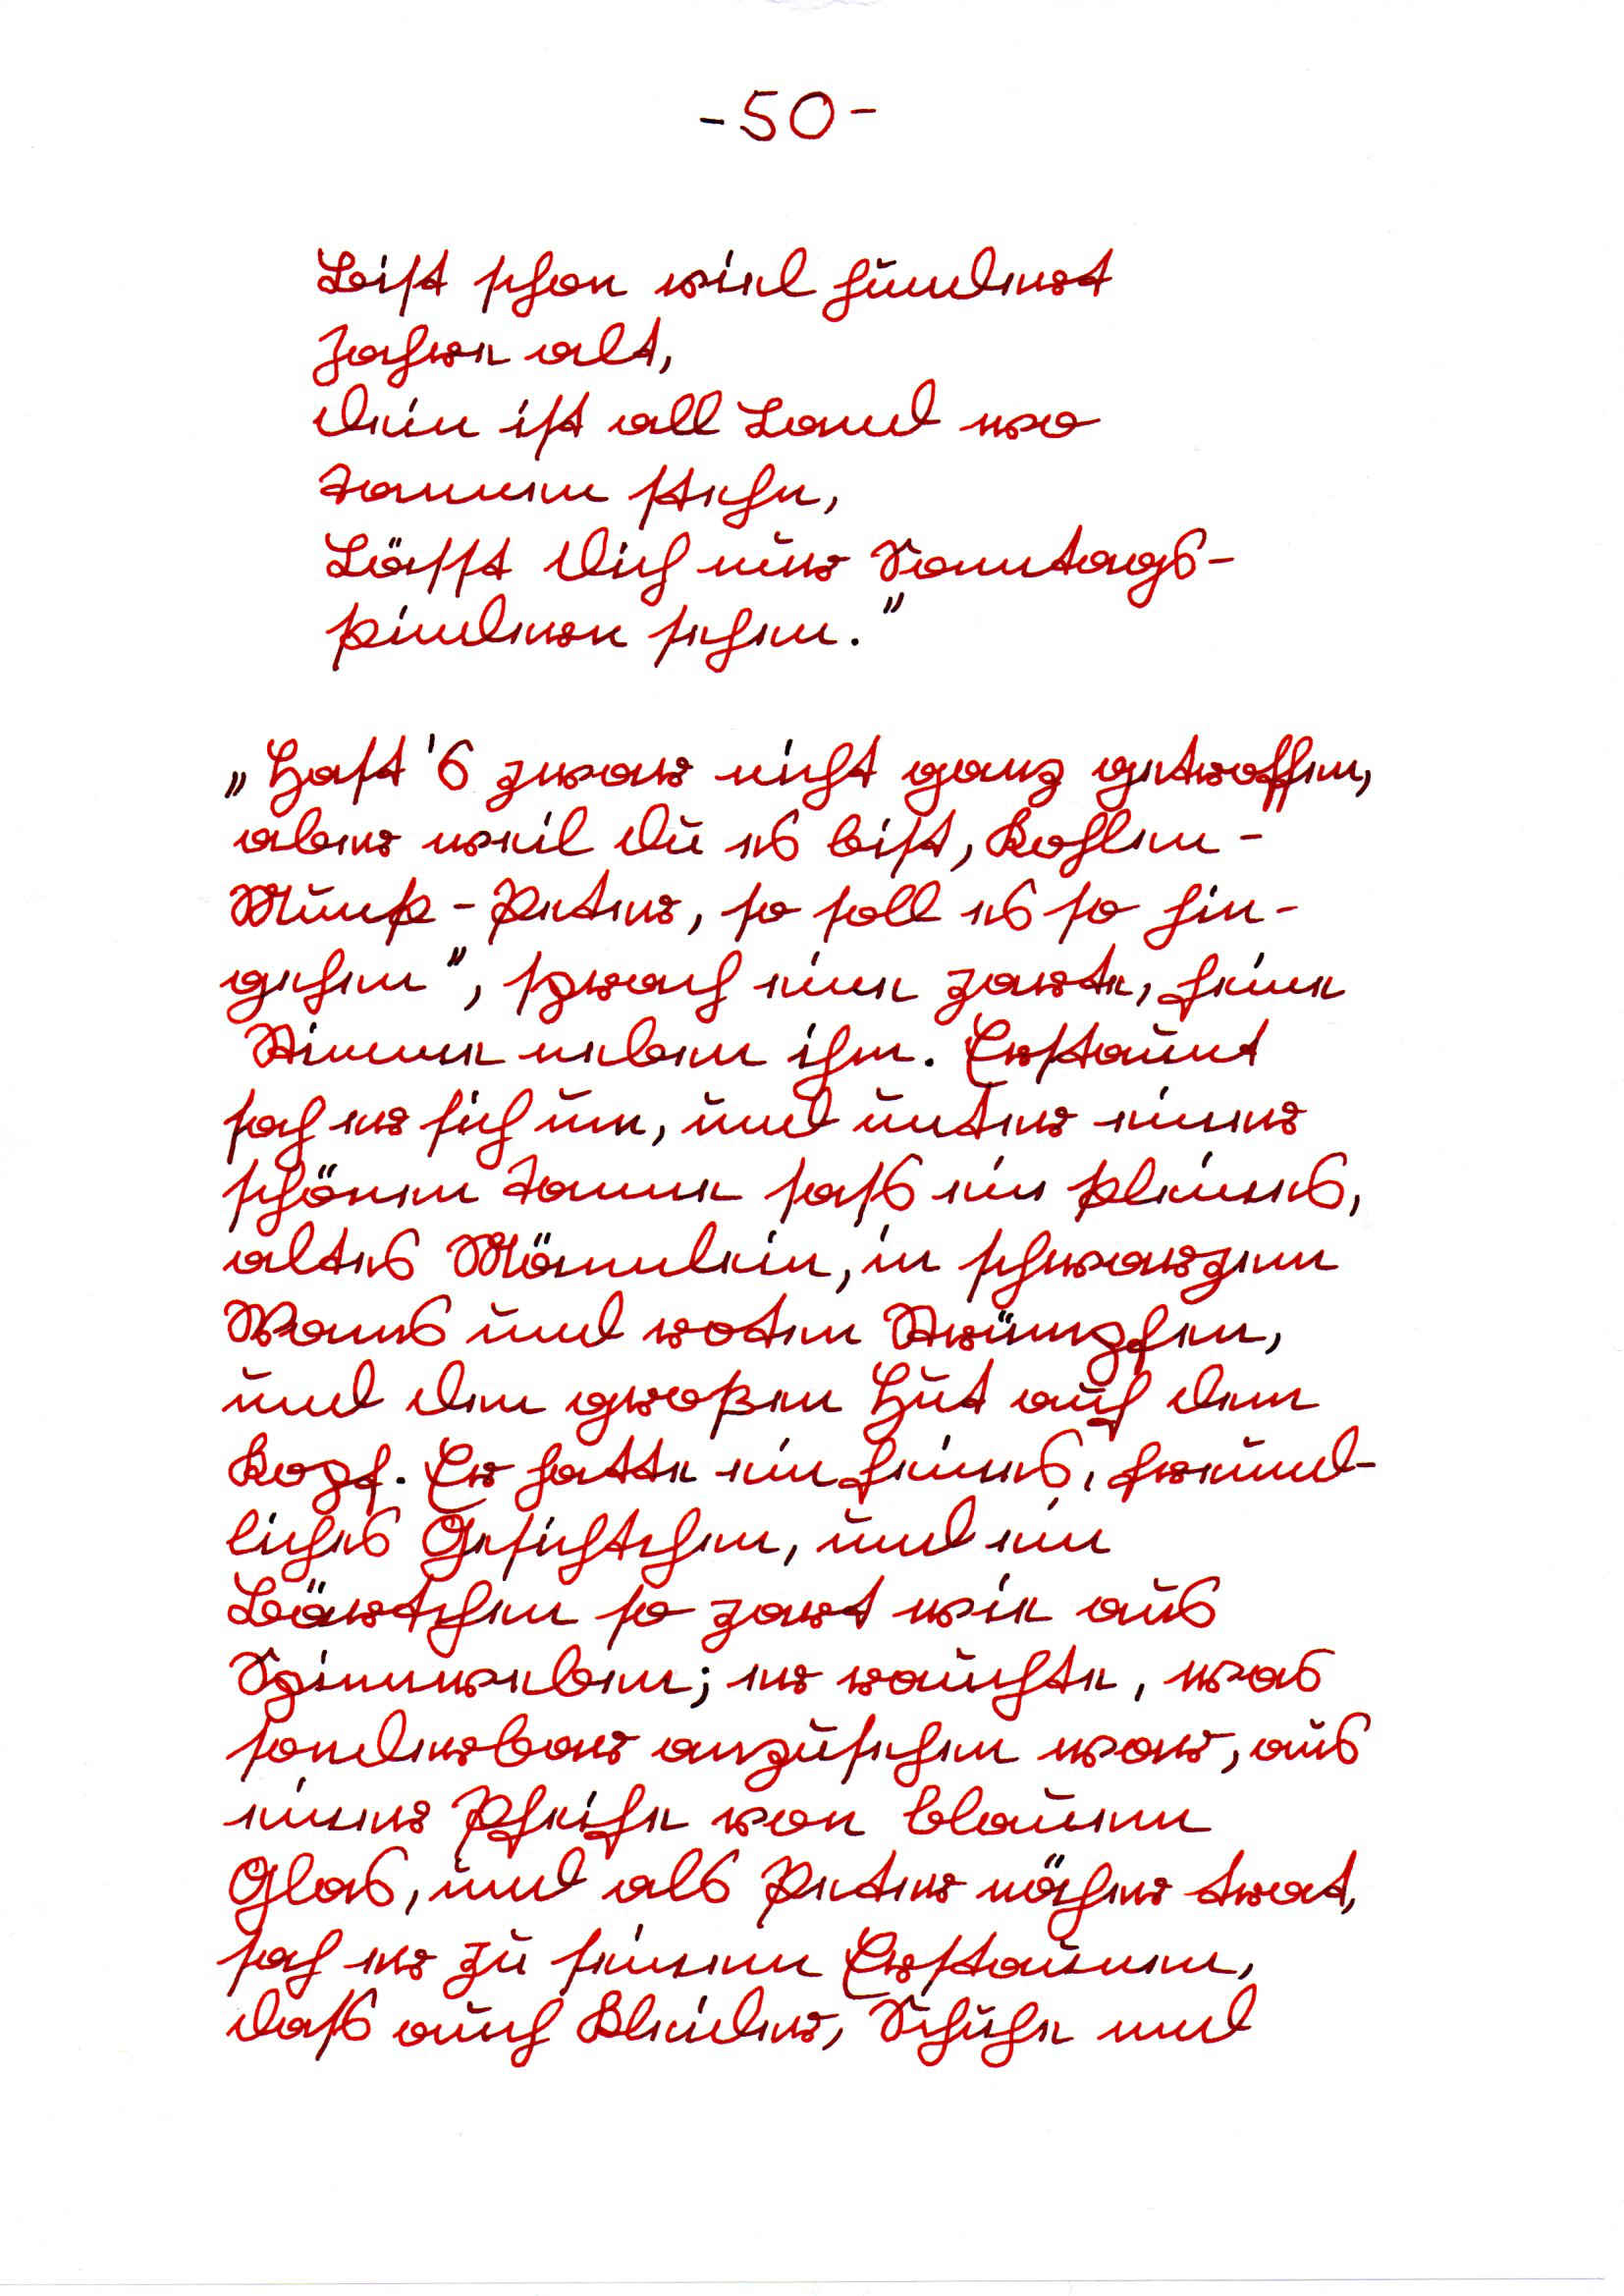 -50-
Bist schon viel hundert
Jahre alt,
dein ist all Land wo
Tannen stehn,
Läßt Dich nur Sonntags-
kindern sehen."
„Hast's zwar nicht ganz getroffen,
aber weil Du es bist, Kohlen-
Munk-Peter, so soll es so hin-
gehen", sprach eine zarte, feine
Stimme neben ihm. Erstaunt
sah er sich um, und unter einer
schönen Tanne saß ein kleines,
altes Männlein, in schwarzem
Wams und roten Strümpfen,
und den großen Hut auf dem
Kopf. Er hatte ein feines, freund-
liches Gesichtchen, und ein
Bärtchen so zart wie aus
Spinnweben; er rauchte, was
sonderbar anzusehen war, aus
einer Pfeife von blauem
Glas, und als Peter näher trat,
sah er zu seinem Erstaunen,
daß auch Kleider, Schuhe und